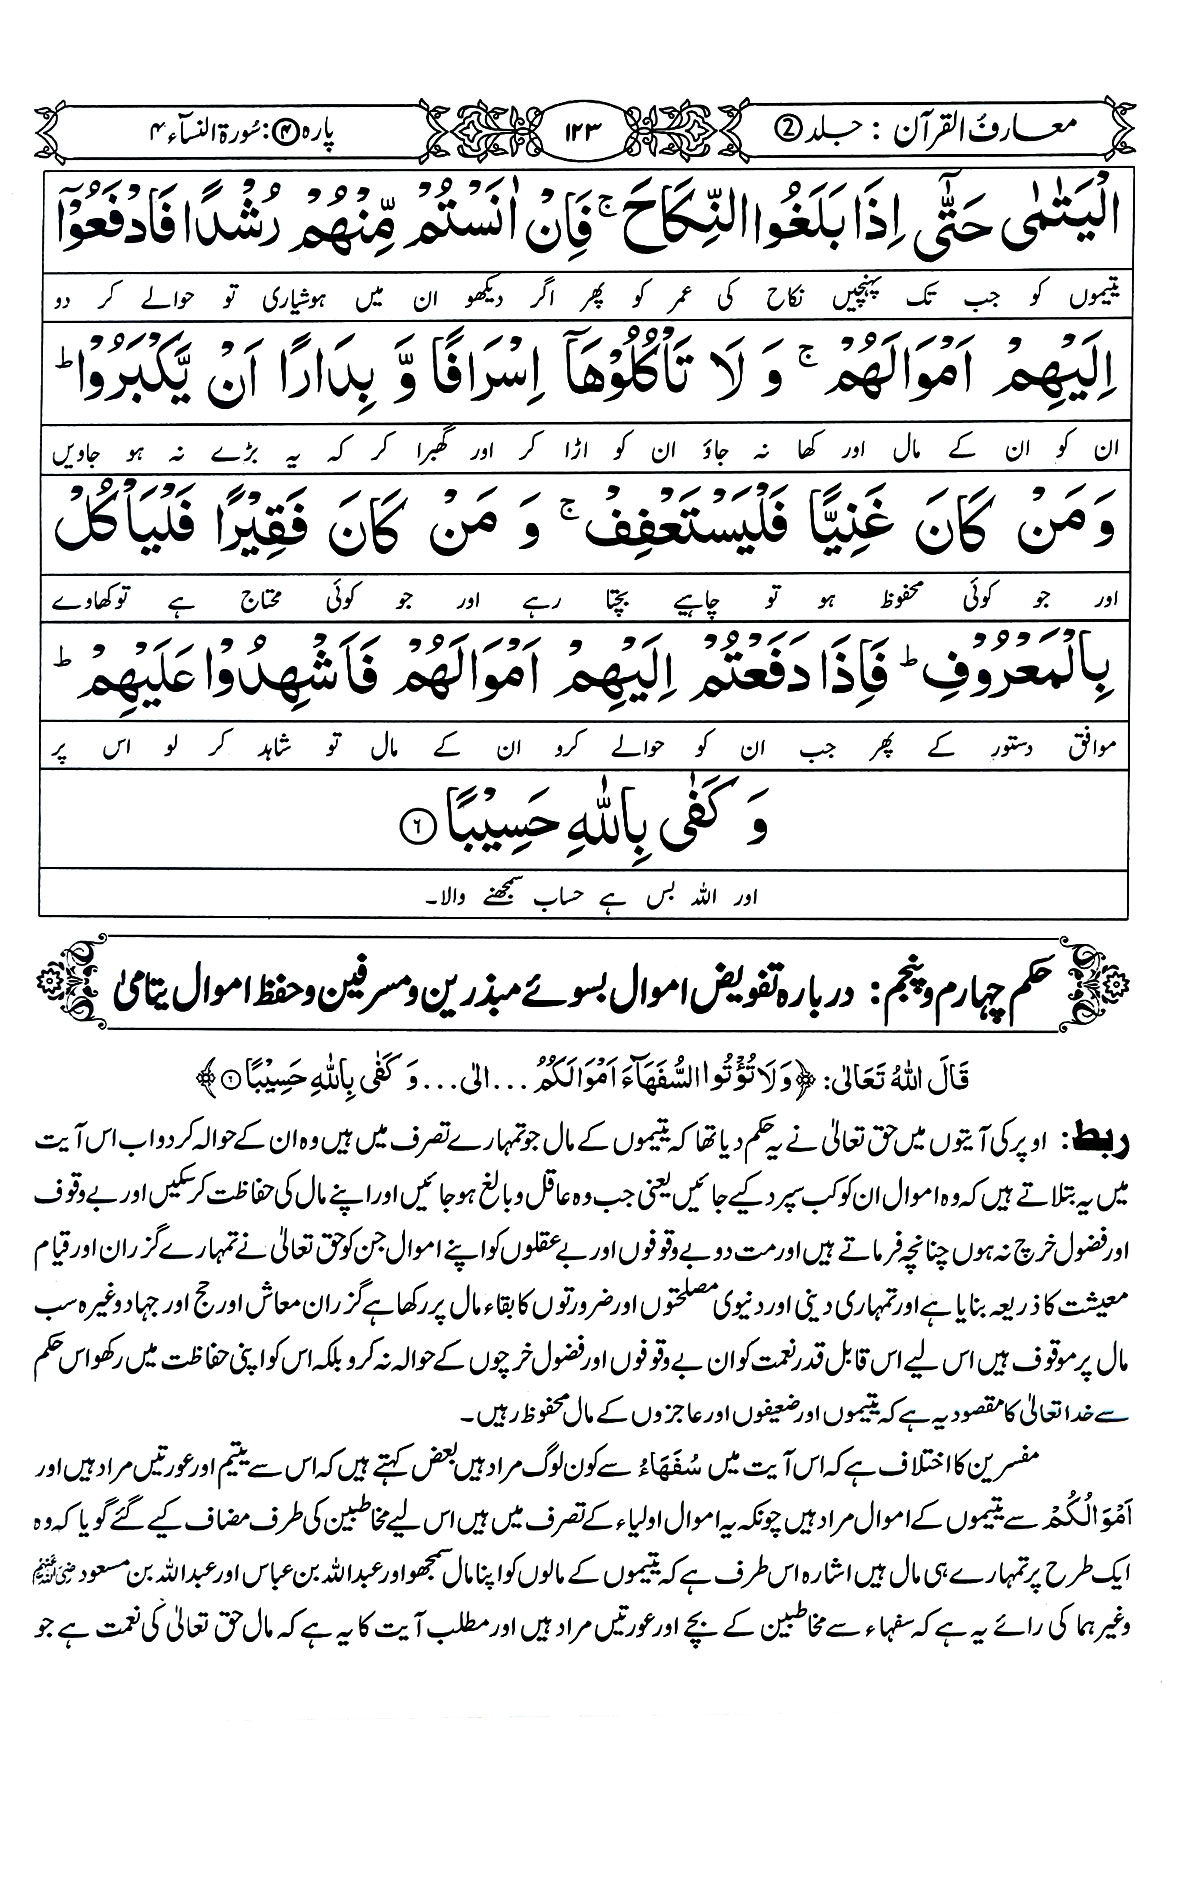 معارفُ القرآن : جلد ②
۱۲۳
پارہ ④ : سُورۃ النسآء ۴
الْيَتٰمٰى حَتّٰۤى اِذَا بَلَغُوا النِّكَاحَ ۚ فَاِنْ اٰنَسْتُمْ مِّنْهُمْ رُشْدًا فَادْفَعُوْۤا
یتیموں کو جب تک پہنچیں نکاح کی عمر کو پھر اگر دیکھو ان میں ہوشیاری تو حوالے کر دو
اِلَيْهِمْ اَمْوَالَهُمْ ۚ وَ لَا تَاْكُلُوْهَاۤ اِسْرَافًا وَّ بِدَارًا اَنْ يَّكْبَرُوْا ؕ
ان کو ان کے مال اور کھا نہ جاؤ ان کو اڑا کر اور گھبرا کر کہ یہ بڑے نہ ہو جاویں
وَ مَنْ كَانَ غَنِيًّا فَلْيَسْتَعْفِفْ ۚ وَ مَنْ كَانَ فَقِيْرًا فَلْيَاْكُلْ
اور جو کوئی محفوظ ہو تو چاہیے بچتا رہے اور جو کوئی محتاج ہے تو کھاوے
بِالْمَعْرُوْفِ ؕ فَاِذَا دَفَعْتُمْ اِلَيْهِمْ اَمْوَالَهُمْ فَاَشْهِدُوْا عَلَيْهِمْ ؕ
موافق دستور کے پھر جب ان کو حوالے کرو ان کے مال تو شاہد کر لو اس پر
وَ كَفٰى بِاللّٰهِ حَسِيْبًا ۝۶
اور اللہ بس ہے حساب سمجھنے والا۔
حکم چہارم و پنجم : دربارہ تفویض اموال بسوئے مبذرین و مسرفین و حفظ اموال یتامیٰ
قَالَ اللهُ تَعَالٰی: ﴿وَلَا تُؤْتُوا السُّفَهَآءَ اَمْوَالَكُمُ ... الی ... وَ كَفٰى بِاللّٰهِ حَسِيْبًا ۝۶﴾
ربط: اوپر کی آیتوں میں حق تعالیٰ نے یہ حکم دیا تھا کہ یتیموں کے مال جو تمہارے تصرف میں ہیں وہ ان کے حوالہ کر دو اب اس آیت
میں یہ بتلاتے ہیں کہ وہ اموال ان کو کب سپرد کیے جائیں یعنی جب وہ عاقل و بالغ ہو جائیں اور اپنے مال کی حفاظت کر سکیں اور بے وقوف
اور فضول خرچ نہ ہوں چنانچہ فرماتے ہیں اور مت دو بے وقوفوں اور بے عقلوں کو اپنے اموال جن کو حق تعالیٰ نے تمہارے گزران اور قیام
معیشت کا ذریعہ بنایا ہے اور تمہاری دینی اور دنیوی مصلحتوں اور ضرورتوں کا بقاء مال پر رکھا ہے گزران معاش اور حج اور جہاد وغیرہ سب
مال پر موقوف ہیں اس لیے اس قابل قدر نعمت کو ان بے وقوفوں اور فضول خرچوں کے حوالہ نہ کرو بلکہ اس کو اپنی حفاظت میں رکھو اس حکم
سے خدا تعالیٰ کا مقصود یہ ہے کہ یتیموں اور ضعیفوں اور عاجزوں کے مال محفوظ رہیں۔
مفسرین کا اختلاف ہے کہ اس آیت میں سُفَهَاءُ سے کون لوگ مراد ہیں بعض کہتے ہیں کہ اس سے یتیم اور عورتیں مراد ہیں اور
اَمْوَالُكُمْ سے یتیموں کے اموال مراد ہیں چونکہ یہ اموال اولیاء کے تصرف میں ہیں اس لیے مخاطبین کی طرف مضاف کیے گئے گویا کہ وہ
ایک طرح پر تمہارے ہی مال ہیں اشارہ اس طرف ہے کہ یتیموں کے مالوں کو اپنا مال سمجھو اور عبداللہ بن عباس اور عبداللہ بن مسعود رضی اللہ عنہم
وغیرہما کی رائے یہ ہے کہ سفہاء سے مخاطبین کے بچے اور عورتیں مراد ہیں اور مطلب آیت کا یہ ہے کہ مال حق تعالیٰ کی نعمت ہے جو